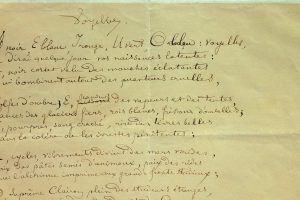 Voyelles
A noir, E blanc, I rouge, U vert, O bleu : voyelles,
dirai quelque jour vos naissances latentes :
noir corset velu des mouches éclatantes
bombinent autour des puanteurs cruelles,
d'ombre ; E, des vapeurs et des tentes,
des glaciers fiers, rois blancs, frissons d'ombelles ;
pourpres, sang craché, rire des lèvres belles
dans la colère ou les ivresses pénitentes ;
cycles, vibrements divins des mers virides,
des pâtis semés d'animaux, paix des rides
que l'alchimie imprime aux grands fronts studieux ;
Suprême Clairon plein des strideurs étranges,